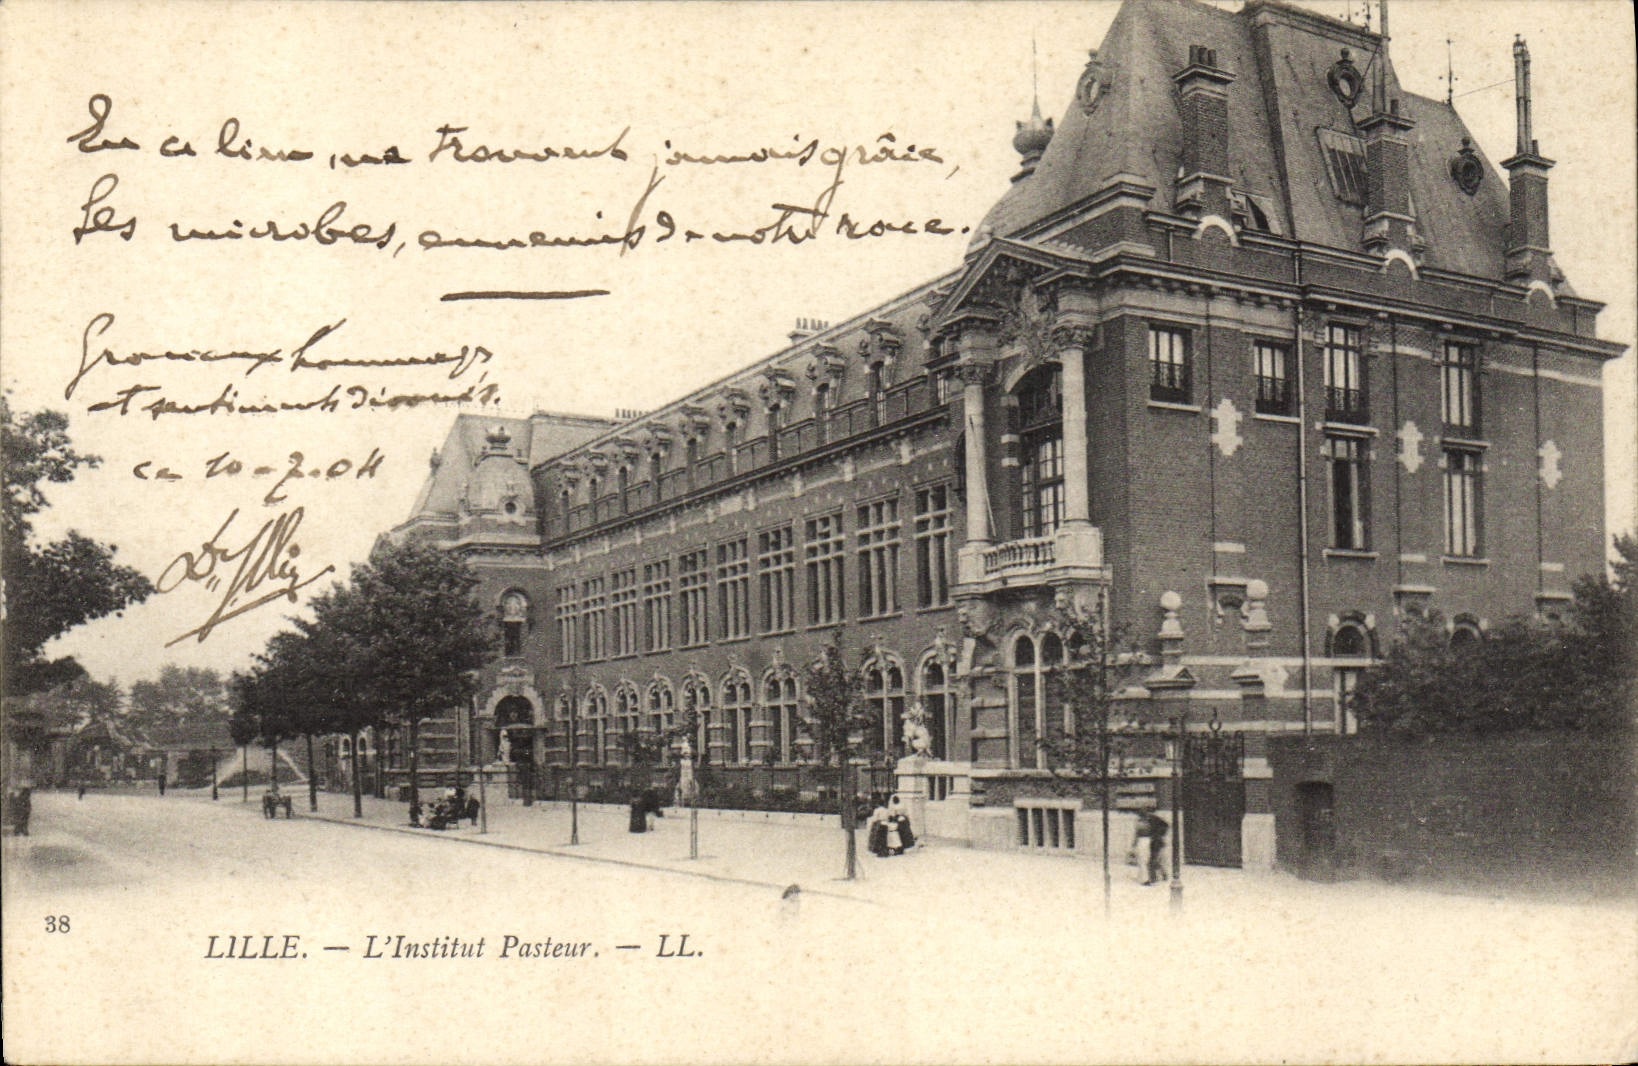 En ce lieu, ne trouvent jamais grâce,
Les microbes, ennemis de notre race.
Gracieux hommages
et sentiments dévoués.
ce 10-7-04
Dr
38
LILLE. — L'Institut Pasteur. — LL.